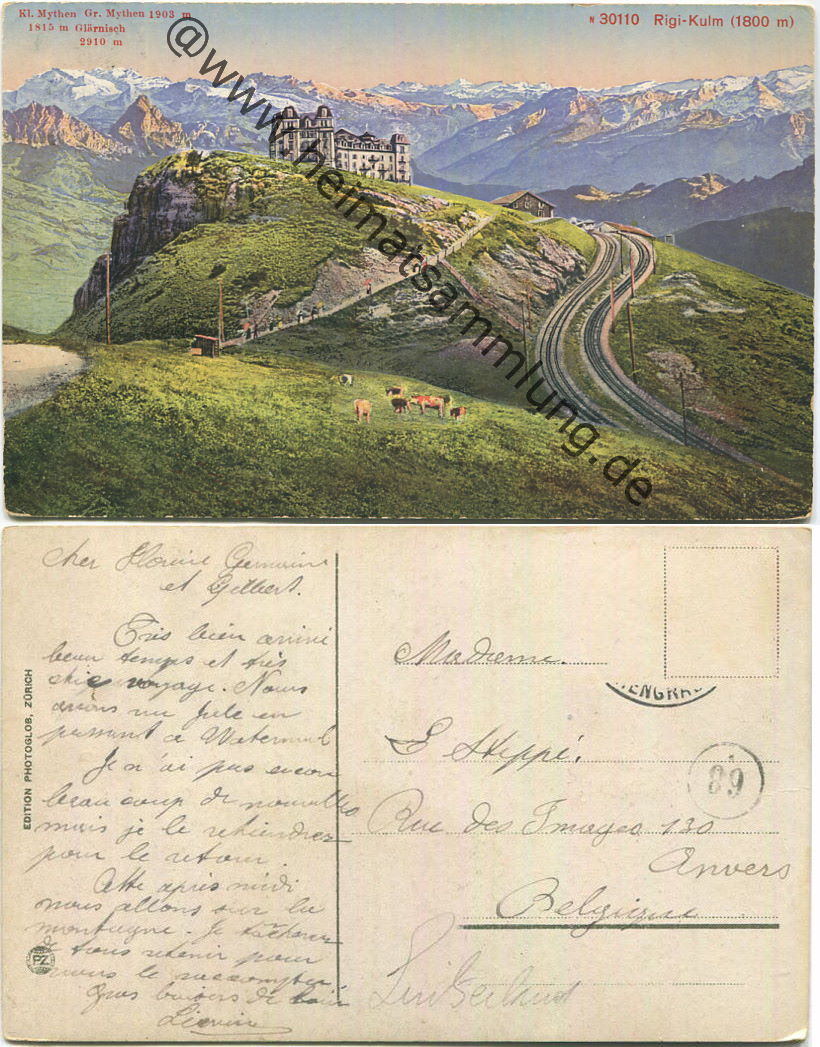 Kl. Mythen Gr. Mythen 1903 m
1815 m Glärnisch
2910 m
N 30110 Rigi-Kulm (1800 m)
@www.heimatsammlung.de
Cher Germaine
et Gilbert.
Très bien arrivé
beau temps et très
voyage. Nous
avons vu Jule en
passant à
Je n'ai pas encor
beaucoup de nouvelles
mais je le
pour le retour.
Cette après midi
nous allons sur la
montagne. Je
tous retenir pour
vous le raccompter
Gros baisers de
EDITION PHOTOGLOB, ZÜRICH
PZ
Madame.
S Steppé.
Rue des Images 130
Anvers
Belgique
89